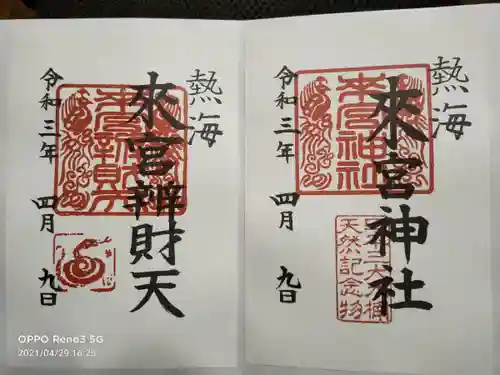 熱海
來宮辨財天
令和三年 四月 九日
熱海
來宮神社
令和三年 四月 九日
來宮神社
天然記念物
OPPO Reno3 5G
2021/04/29 16:25